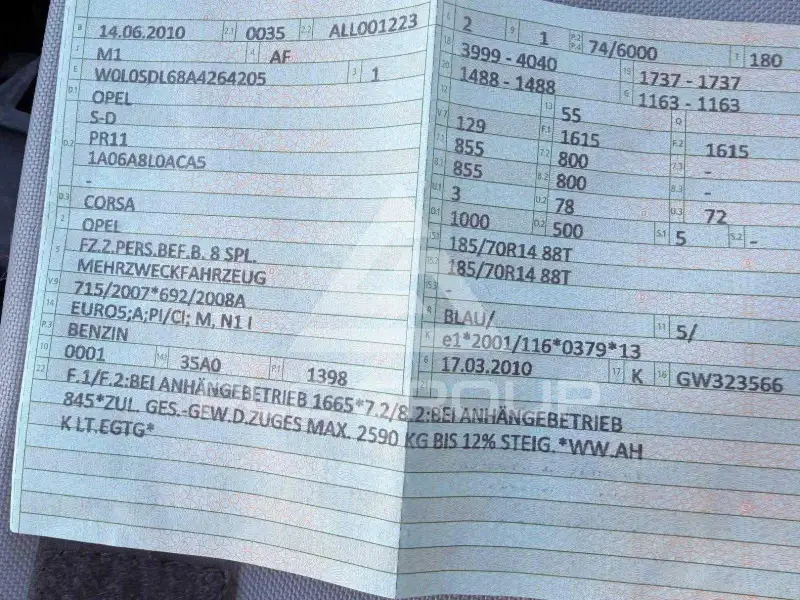 B 14.06.2010 2.1 0035 2.2 ALL001223
J M1 4 AF
E W0L0SDL68A4264205 3 1
D.1 OPEL
S-D
D.2 PR11
1A06A8L0ACA5
-
D.3 CORSA
2 OPEL
5 FZ.Z.PERS.BEF.B. 8 SPL.
MEHRZWECKFAHRZEUG
V.9 715/2007*692/2008A
14 EURO5;A;PI/CI; M, N1 I
P.3 BENZIN
10 0001 14.1 35A0 P.1 1398
L 2 9 1 P.2 P.4 74/6000 T 180
18 3999 - 4040 19 1737 - 1737
20 1488 - 1488 G 1163 - 1163
12 13 55 Q
V.7 129 F.1 1615 F.2 1615
7.1 855 7.2 800 7.3 -
8.1 855 8.2 800 8.3 -
U.1 3 U.2 78 U.3 72
O.1 1000 O.2 500 S.1 5 S.2 -
15.1 185/70R14 88T
15.2 185/70R14 88T
15.3 -
R BLAU/ 11 5/
K e1*2001/116*0379*13
6 17.03.2010 17 K 16 GW323566
21
22 F.1/F.2:BEI ANHÄNGEBETRIEB 1665*7.2/8.2:BEI ANHÄNGEBETRIEB
845*ZUL. GES.-GEW.D.ZUGES MAX. 2590 KG BIS 12% STEIG.*WW.AH
K LT.EGTG*